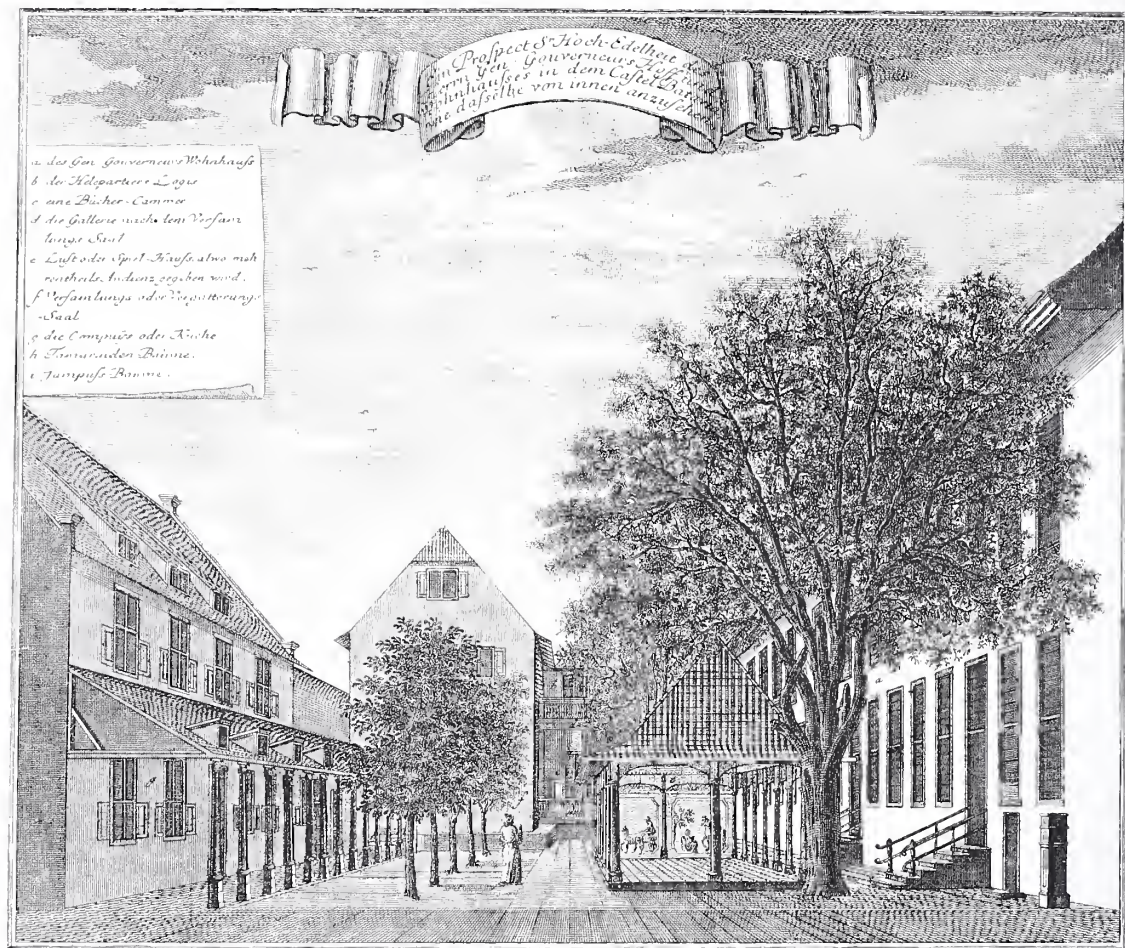 Ein Prospect Sr Hoch-Edelheit des
Herrn Gen Gouverneurs Hofs u.
Wohnhauses in dem Castel Batavia
wie dasselbe von innen anzusehen
a des Gen Gouverneurs Wohnhauss
b der Helepartiere Logis
c eine Bücher-Cammer
d die Gallerie nach dem Versam
lungs Saal
e Lust oder Spiel-Hauss, alwo meh
rentheils Audienz gegeben wird.
f Versamlungs oder
-Saal
g die Compuis oder Küche
h Tamarinden Bäume.
i Jampuss Bäume.